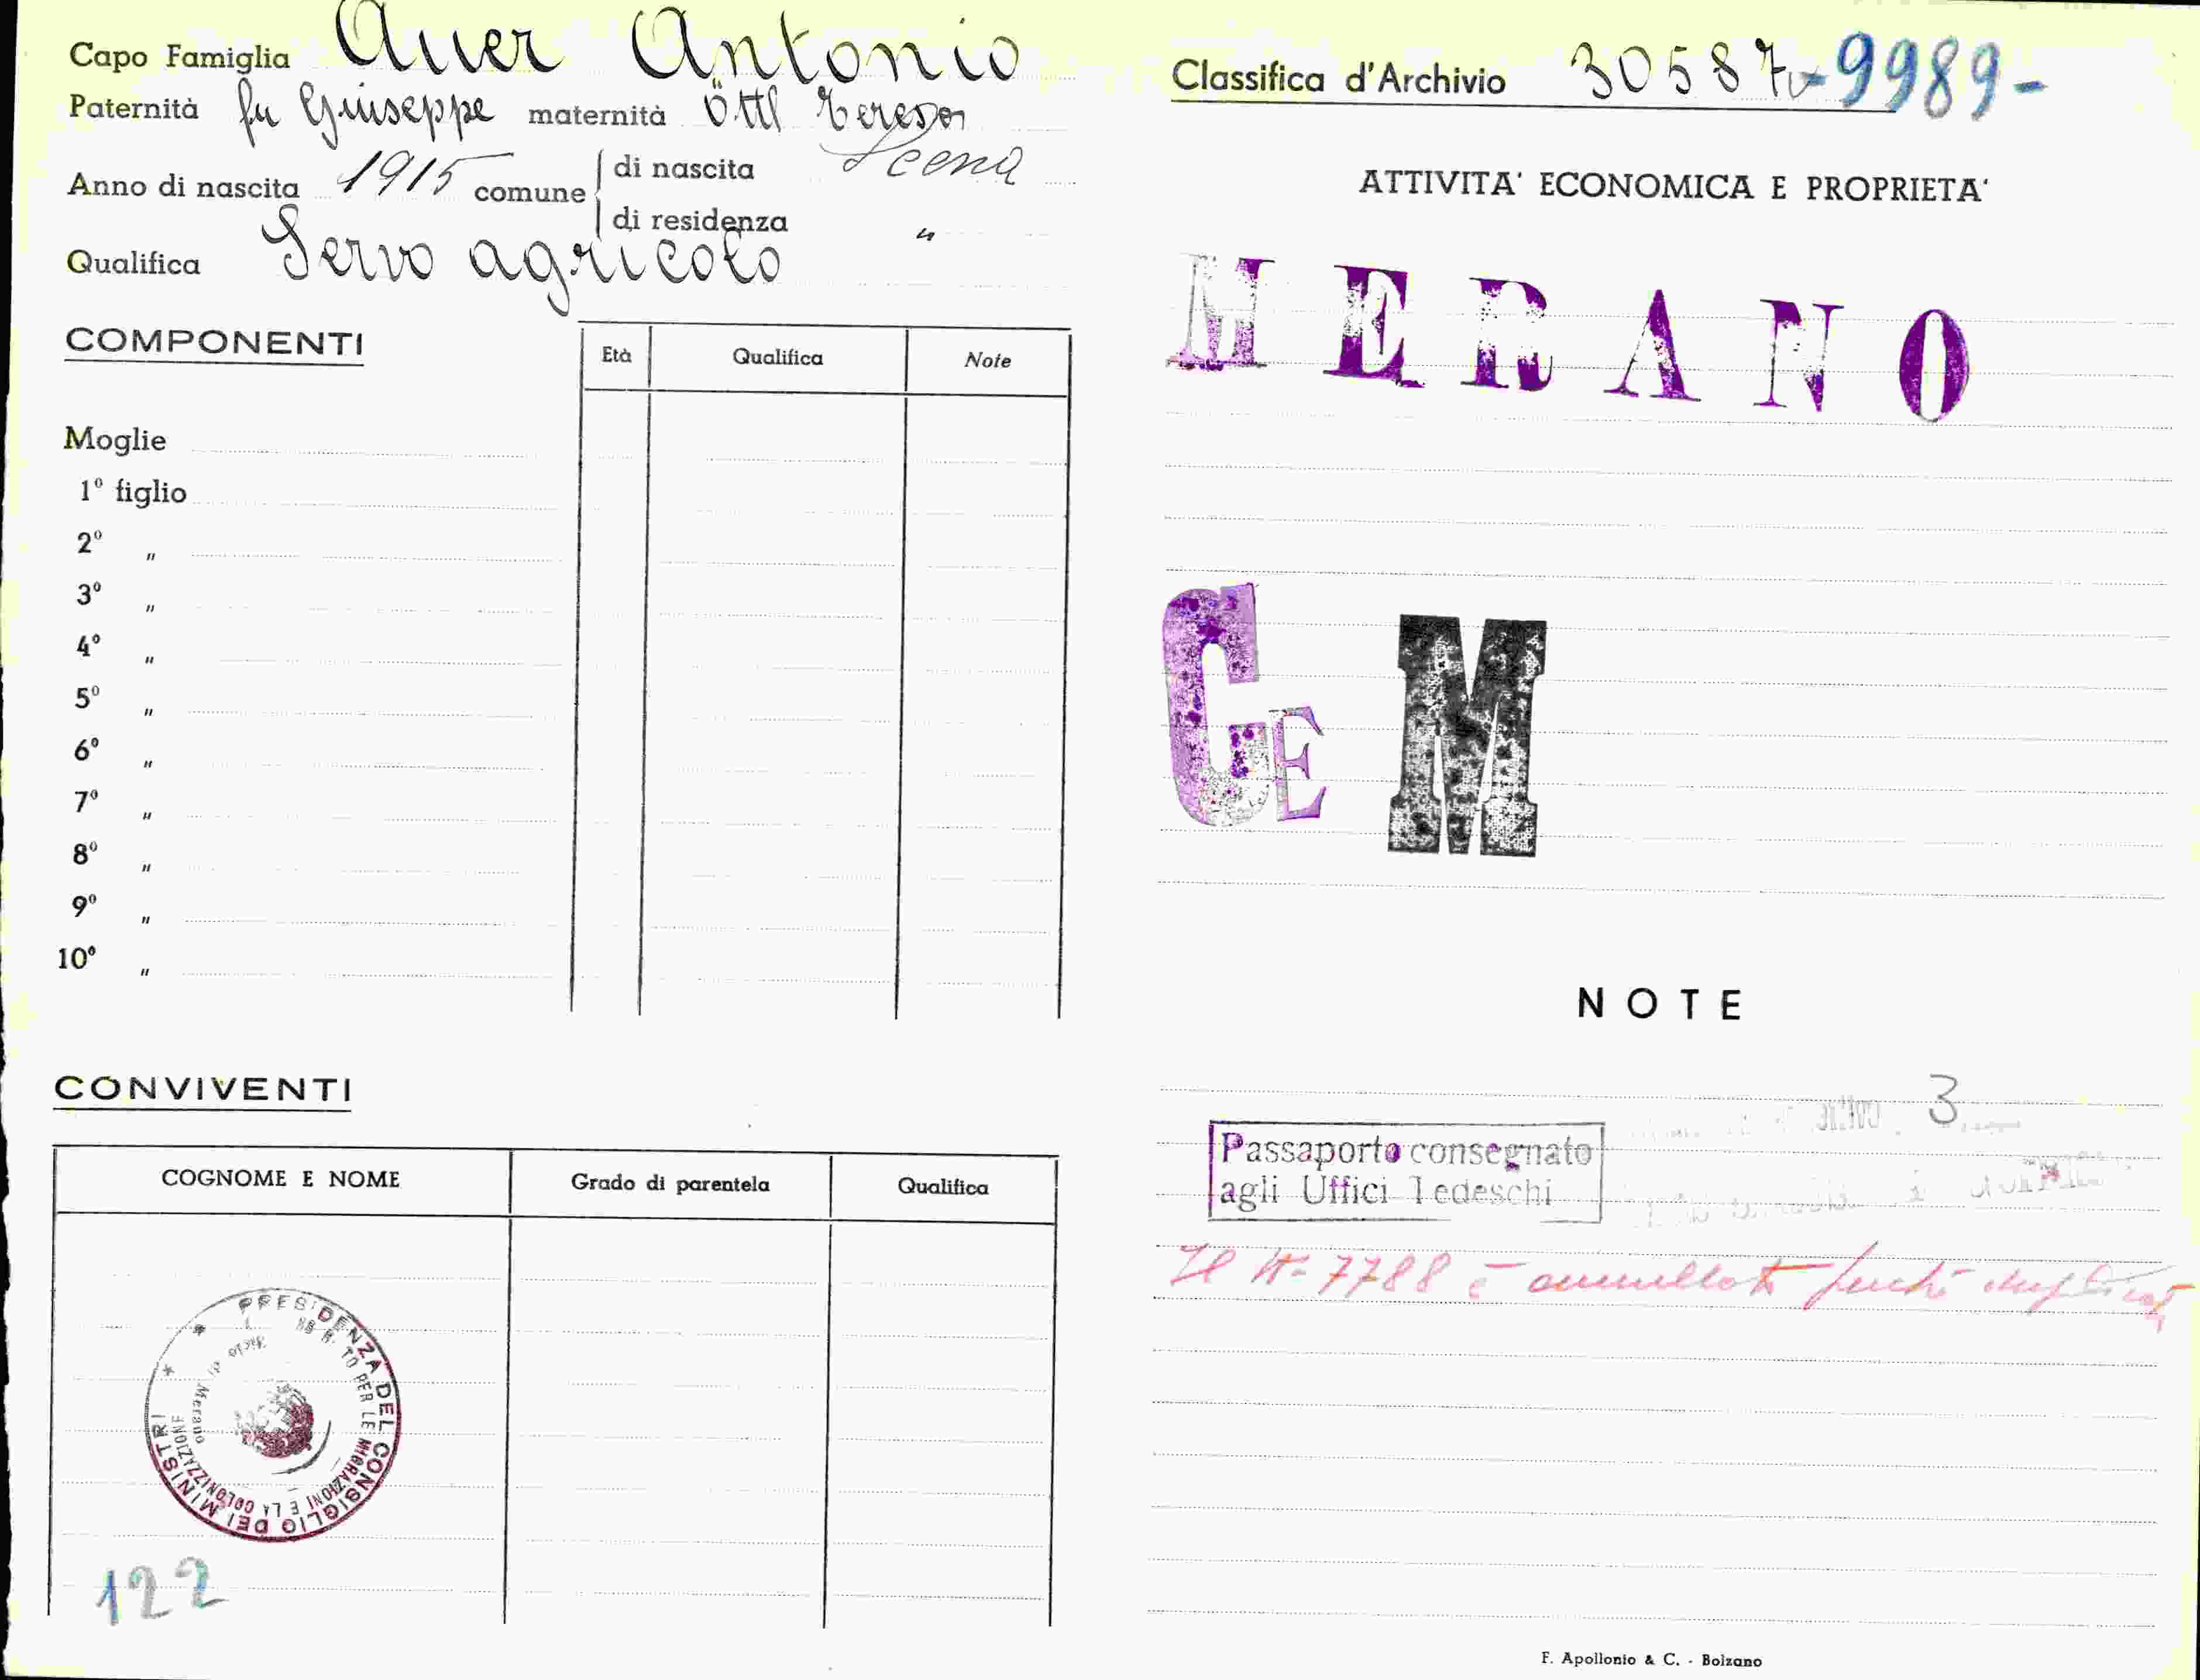 Capo Famiglia Auer Antonio
Paternità fu Giuseppe maternità Öttl Teresa
Anno di nascita 1915 comune di nascita Scena
di residenza "
Qualifica Servo agricolo
COMPONENTI
Età Qualifica Note
Moglie
1º figlio
2º "
3º "
4º "
5º "
6º "
7º "
8º "
9º "
10º "
CONVIVENTI
COGNOME E NOME Grado di parentela Qualifica
PRESIDENZA DEL CONSIGLIO DEI MINISTRI
TO PER LE MIGRAZIONI E LA COLONIZZAZIONE
di Merano
122
Classifica d'Archivio 30587 -9989-
ATTIVITA' ECONOMICA E PROPRIETA'
MERANO
GE M
NOTE
3
Passaporto consegnato
agli Uffici Tedeschi
Il N- 7788 è annullato perchè
F. Apollonio & C. - Bolzano